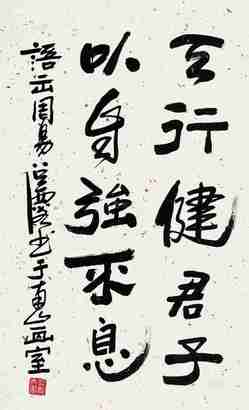 天行健君子
以自強不息
語出周易 书于 画室